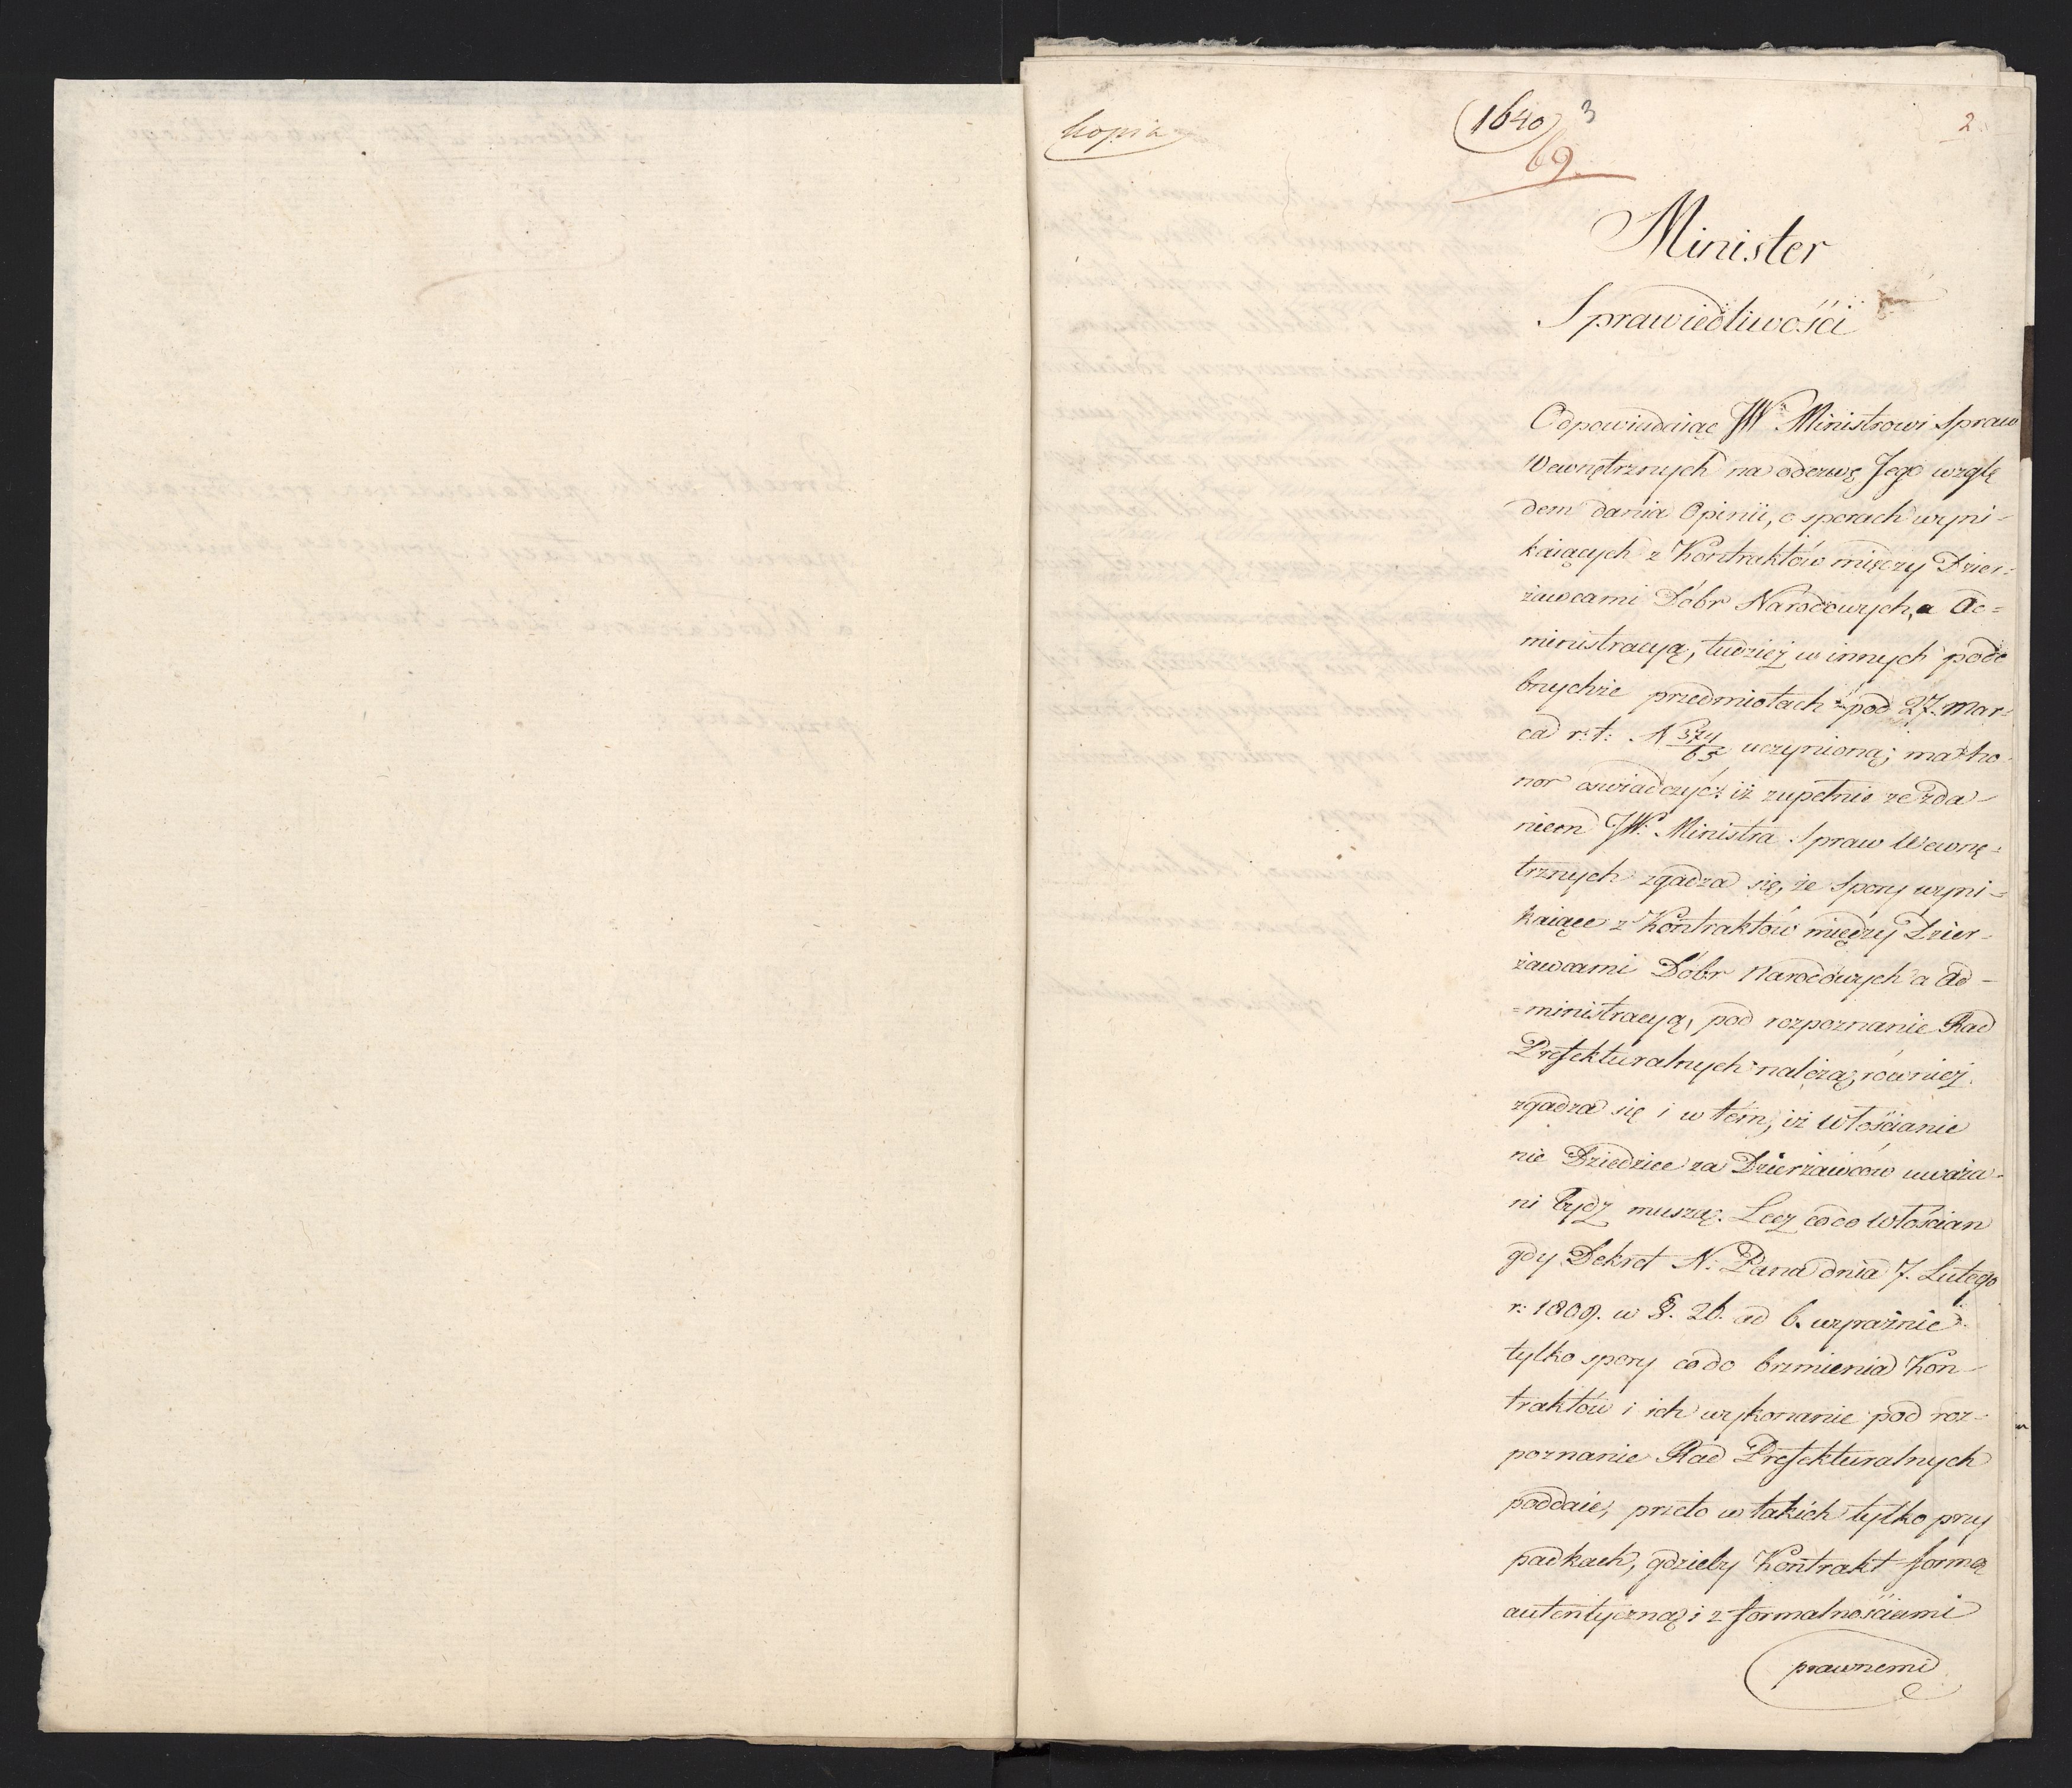 Kopia
(1640) 3
69.
2.
Minister
Sprawiedliwości
Odpowiadaiąc JW Ministrowi Spraw
Wewnętrznych na odezwę Jego wzglę
dem dania Opinii, o sporach wyni-
kaiących z Kontraktów między Dzier-
żawcami Dóbr Narodowych, a Ad=
ministracyą, tudzież w innych podo
bnychże przedmiotach pod 27. Mar-
ca r. t: N 374/65 uczynioną; ma ho
nor oswiadczyć: iż zupełnie ze zda-
niem JW. Ministra Spraw Wewnę-
trznych zgadza się, że Spory wyni-
kaiące z Kontraktów między Dzier-
żawcami Dóbr Narodowych a Ad-
=ministracyą, pod rozpoznanie Rad
Prefekturalnych należą, również
zgadza się i w tém, iż Włościanie
nie Dziedzice za Dzierżawców uważa-
ni bydź muszą. Lecz co do Włościan
gdy Dekret N. Pana dnia 7. Lutego
r: 1809. w §. 26. ad b. wyraźnie
tylko spory co do brzmienia Kon-
traktów i ich wykonanie pod roz-
poznanie Rad Prefekturalnych
poddaie, przeto w takich tylko przy
padkach, gdzieby Kontrakt formą
autentyczną i z formalnościami
prawnemi